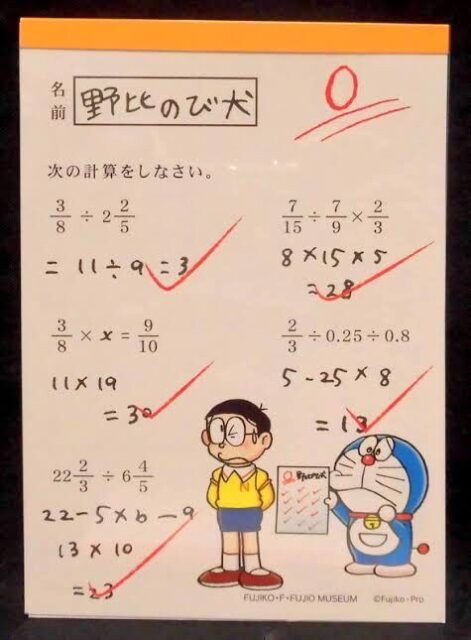 名前 野比のび犬
0
次の計算をしなさい。
3/8 ÷ 2 2/5
= 11 ÷ 9 = 3
7/15 ÷ 7/9 × 2/3
8 × 15 × 5
= 28
3/8 × x = 9/10
11 × 19
= 30
2/3 ÷ 0.25 ÷ 0.8
5 - 25 × 8
= 13
22 2/3 ÷ 6 4/5
22 - 5 × 6 - 9
13 × 10
= 23
0 野比のび犬
FUJIKO・F・FUJIO MUSEUM ©Fujiko-Pro